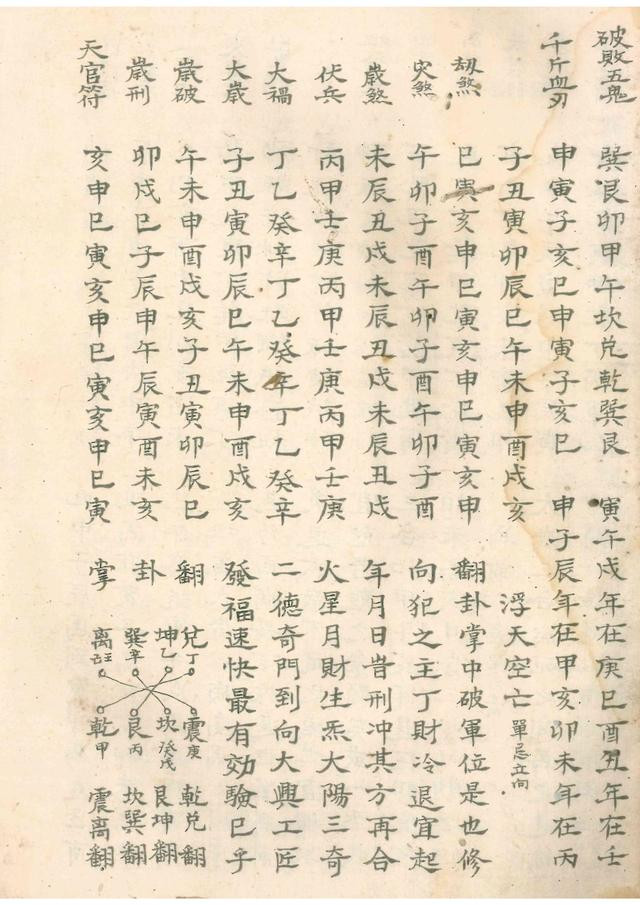 破敗五鬼 巽艮卯甲午坎兌乾巽艮 寅午戌年在庚巳酉丑年在壬
千斤血刃 申寅子亥巳申寅子亥巳 申子辰年在甲亥卯未年在丙
子丑寅卯辰巳午未申酉戌亥 浮天空亡 單忌立向
刼煞 巳寅亥申巳寅亥申巳寅亥申 翻卦掌中破軍位是也修
灾煞 午卯子酉午卯子酉午卯子酉 向犯之主丁財冷退宜起
歲煞 未辰丑戌未辰丑戌未辰丑戌 年月日旹刑冲其方再合
伏兵 丙甲壬庚丙甲壬庚丙甲壬庚 火星月財生炁大陽三奇
大禍 丁乙癸辛丁乙癸辛丁乙癸辛 二德奇門到向大興工匠
大歲 子丑寅卯辰巳午未申酉戌亥 發福速快最有効驗巳乎
歲破 午未申酉戌亥子丑寅卯辰巳 翻 兌丁 震庚 乾兌翻
坤乙 坎癸戊 艮坤翻
歲刑 卯戌巳子辰申午辰寅酉未亥 卦 巽辛 艮丙 坎巽翻
天官符 亥申巳寅亥申巳寅亥申巳寅 掌 离 乾甲 震离翻